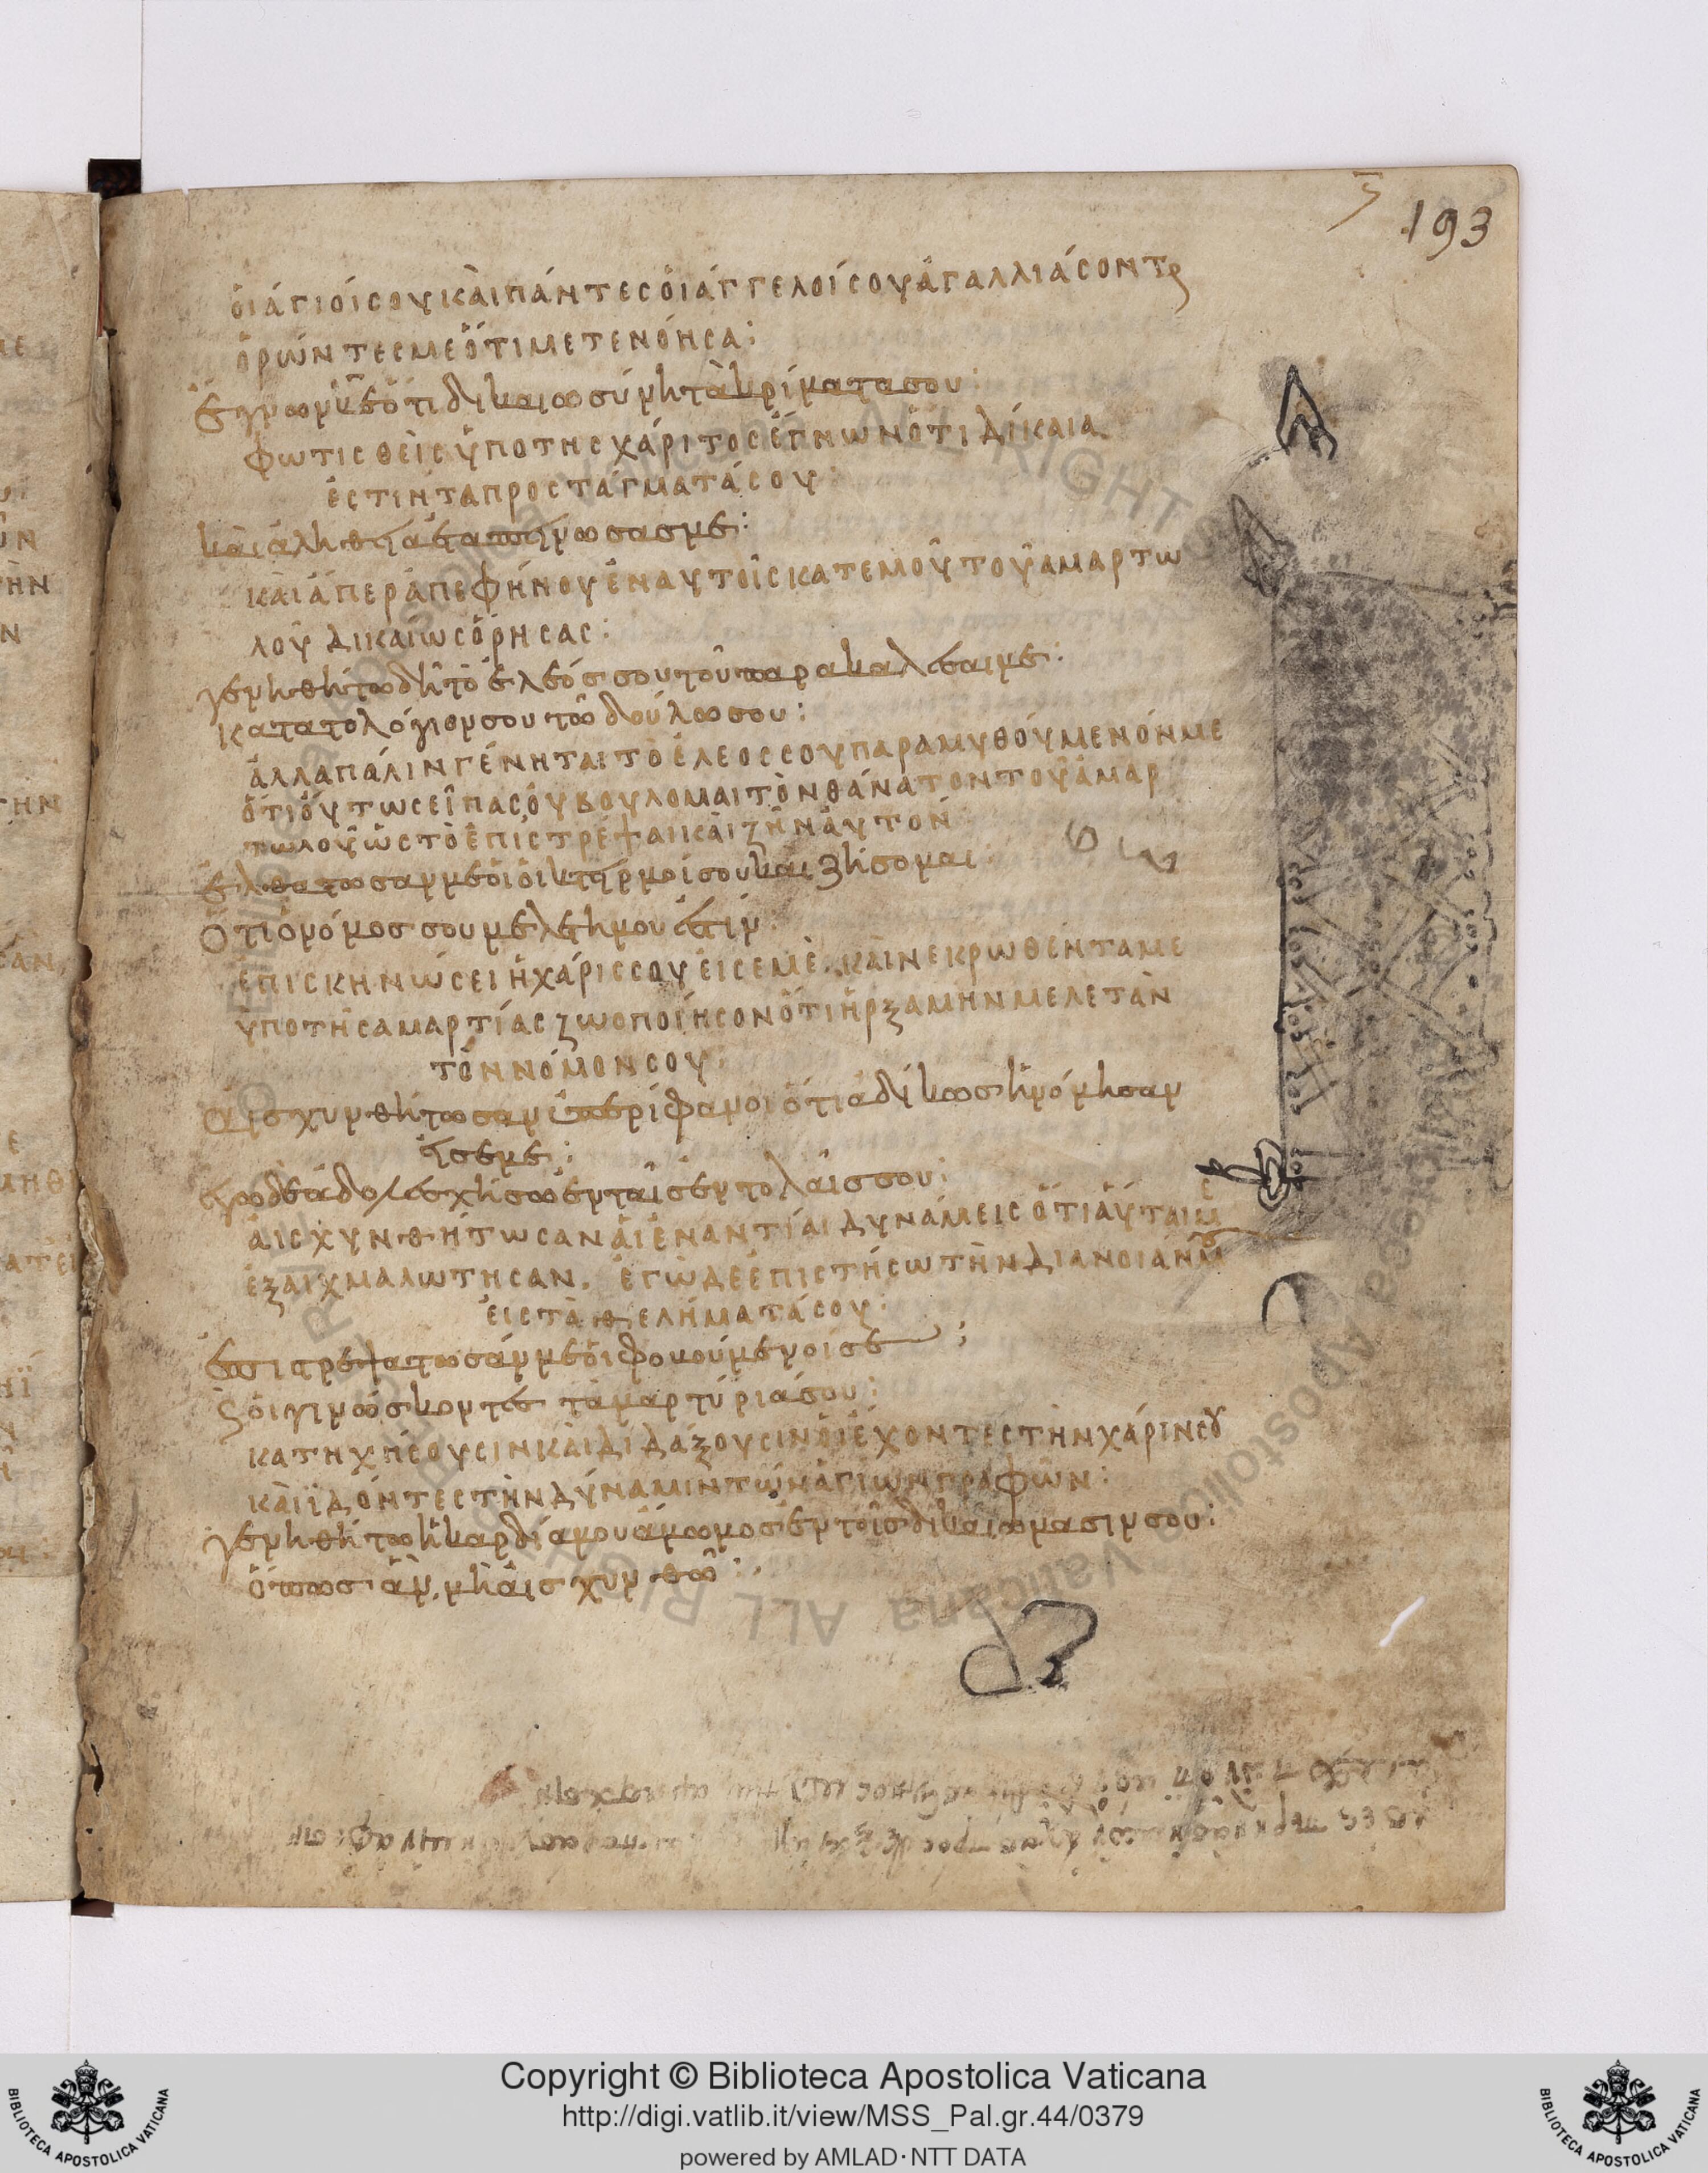 193
ὁι ἅγιόι σου κὰι πάντες ὁι ἄγγελόι σου ἀγαλλιάσοντ
ὁρώντες με ὅτι μετενόησα:
ἔγνων κε ὅτι δικαιωσύνη τὰ κρίματα σου:
φωτισθὲις ὑπο της χάριτος ἔγνων ὅτι δίκαια
ἐστιν τα προστάγματά σου:
κὰι ἀληθεία ἐταπείνωσας με:
κὰι ἅπερ ἀπεφήνου ἐν αυτοῖς κατ εμοῦ τοῦ αμαρτω
λοῦ δικαίως ὅρησας:
γενηθήτω δὴ τὸ ἔλεός σου τοῦ παρακαλέσαι με:
κατα το λόγιον σου τῶ δούλω σου:
ἀλλα πάλιν γένηται τὸ ἔλεος σου παραμυθούμενόν με
ὅτι ὅυτως εῖπας ὀυ βουλομαι τὸν θάνατον τοῦ ἁμαρ
τωλοῦ ὡς τὸ ἐπιστρέψαι κὰι ζῆν ἀυτόν
ἐλθατωσαν με ὁι ὀικτειρμοί σου κὰι ζήσομαι:
Ὅτι ὁ νόμος σου μελέτη μου ἐστίν:
ἐπισκηνώσει ἡ χάρις σου ἐις εμὲ. κὰι νεκρωθέντα με
ὑπο τῆς αμαρτίας ζωοποίησον ὅτι ἠρξάμην μελετὰν
τὸν νόμον σου:
Αἰσχυνθήτωσαν ὑπερίφανοι ὅτι ἀδίκως ἠνόμησαν
ἐις εμε:
εγω δε ἀδολεσχήσω ἐν ταῖς ἐντολαῖς σου:
ἀισχυνθήτωσαν ἁι ἐναντίαι δυνάμεις ὅτι ἁύται με
ἐξαιχμαλώτησαν. ἐγὼ δε ἐπιστήσω τὴν διανοιάν μου
ἐις τὰ θελήματά σου:
ἐπιστρεψατωσάν με ὁι φοβούμενοι σε:
ϛ ὁι γινώσκοντες τὰ μαρτύριά σου:
κατηχήσουσιν κὰι διδάξουσιν ὁι ἔχοντες τὴν χάριν σου
κὰι ϊδόντες τὴν δύναμιν τῶν ἁγίων γραφῶν:
γενηθήτω ἡ καρδία μου ἄμωμος ἐν τοῖς δικαιωμασιν σου:
ὅπως ἂν μὴ ἀισχυνθῶ:
Copyright © Biblioteca Apostolica Vaticana
http://digi.vatlib.it/view/MSS_Pal.gr.44/0379
powered by AMLAD·NTT DATA
BIBLIOTECA APOSTOLICA VATICANA
BIBLIOTECA APOSTOLICA VATICANA